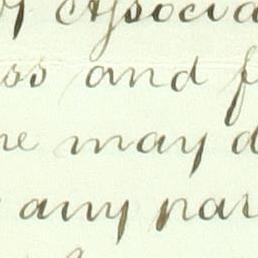 of Associa
ss and f
ne may d
any par